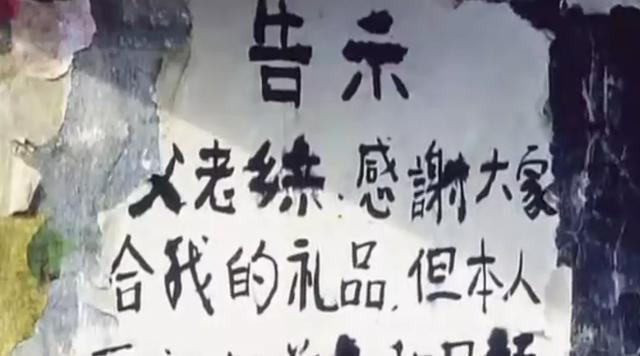 告示
父老乡亲,感謝大家
合我的礼品,但本人